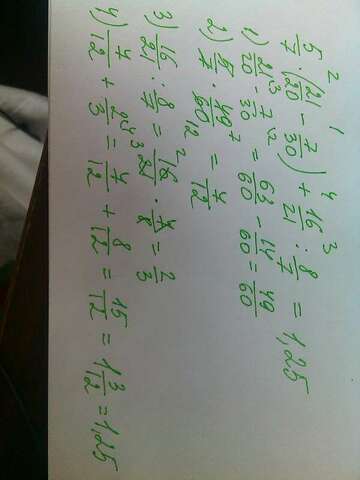 5/7 · (21/20 − 7/30) + 16/21 : 8/7 = 1,25
1) 21/20 − 7/30 = 63/60 − 14/60 = 49/60
2) 5/7 · 49/60 = 7/12
3) 16/21 : 8/7 = 16/21 · 7/8 = 2/3
4) 7/12 + 2/3 = 7/12 + 8/12 = 15/12 = 1 3/12 = 1,25